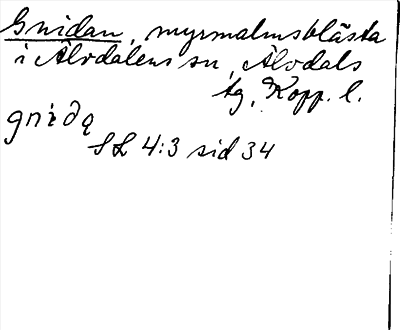 Gnidan, myrmalmsblästa
i Älvdalens sn, Älvdals
tg, Kopp. l.
gnịdą
SL 4:3 sid 34